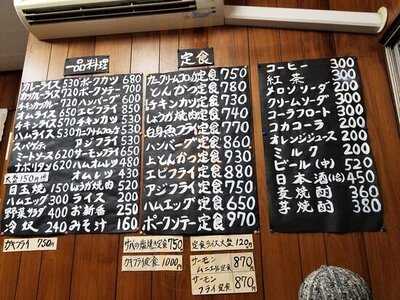 一品料理
カレーライス 530
カツカレーライス 720
チキンカツカレー 720
オムライス 630
チキンライス 530
ハムライス 530
スパゲティ
ミートソース 620
ナポリタン 620
大盛150円増
目玉焼 150
ハムエッグ 300
野菜サラダ 400
冷奴 240
ポークカツ 680
ポークソテー 700
ハンバーグ 600
エビフライ 850
チキンカツ 530
カニクリームコロッケ 530
アジフライ 530
サーモンフライ 650
ハムオムレツ 480
オムレツ 430
しょうが焼肉 520
ライス 200
お新香 250
みそ汁 160
カキフライ 750円
定食
カニクリームコロッケ定食 750
とんかつ定食 780
チキンカツ定食 730
しょうが焼肉定食 740
白身魚フライ定食 770
ハンバーグ定食 860
上とんかつ定食 930
エビフライ定食 880
アジフライ定食 750
ハムエッグ定食 650
ポークソテー定食 970
サバの塩焼き定食 750
カキフライ定食 1000円
定食ライス大盛 120円
サーモンムニエル定食 870円
サーモンフライ定食 870円
コーヒー 300
紅茶 300
メロンソーダ 200
クリームソーダ 300
コーラフロート 300
コカコーラ 200
オレンジジュース 200
ミルク 200
ビール(中) 520
日本酒(1合) 450
麦焼酎 360
芋焼酎 380